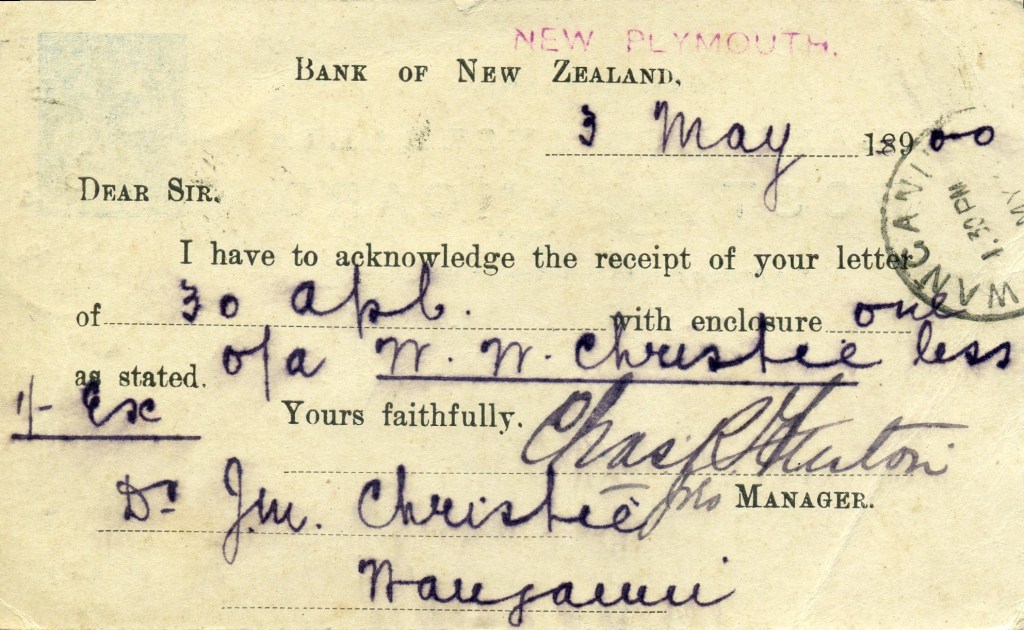 NEW PLYMOUTH.
BANK OF NEW ZEALAND.
3 May 1890 00
DEAR SIR.
I have to acknowledge the receipt of your letter
of 30 Apl. with enclosure one
as stated. o/a W. W. Christie less
1/- Ex
Yours faithfully.
Chas R
pro MANAGER.
Dr J.M. Christie
Wanganui
WANGANUI
1.30 PM
MY